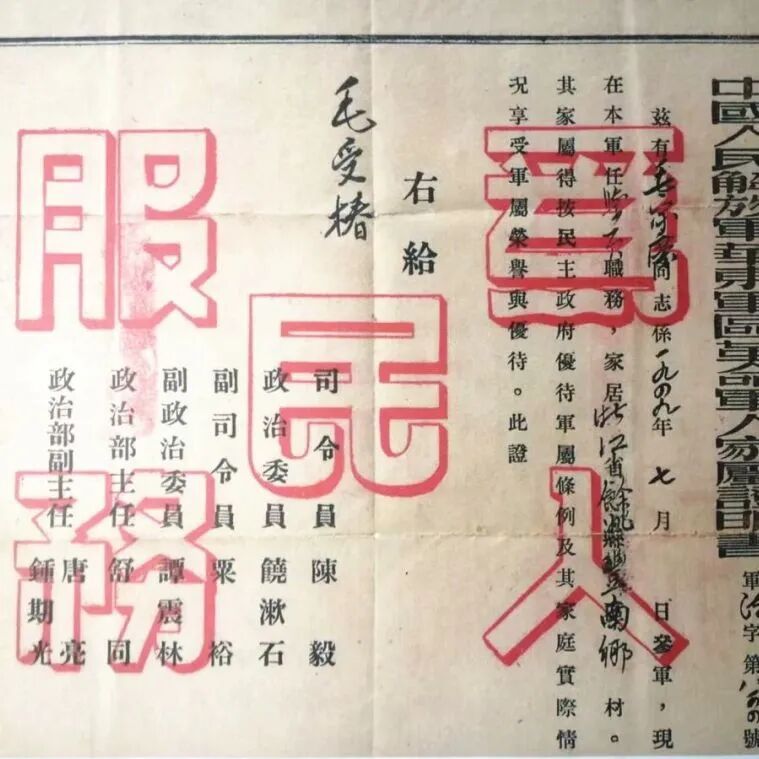 中國人民解放軍華東軍區革命軍人家屬證明書
軍政字第號
兹有同志係一九四九年七月 日參軍，現
在本軍任職務，家居浙江省餘姚縣南鄉 村。
其家屬得按民主政府優待軍屬條例及其家庭實際情
況享受軍屬榮譽與優待。此證
右給
毛受椿
司令員 陳毅
政治委員 饒漱石
副司令員 粟裕
副政治委員 譚震林
政治部主任 舒同
政治部副主任 唐亮
鍾期光
為人民服務